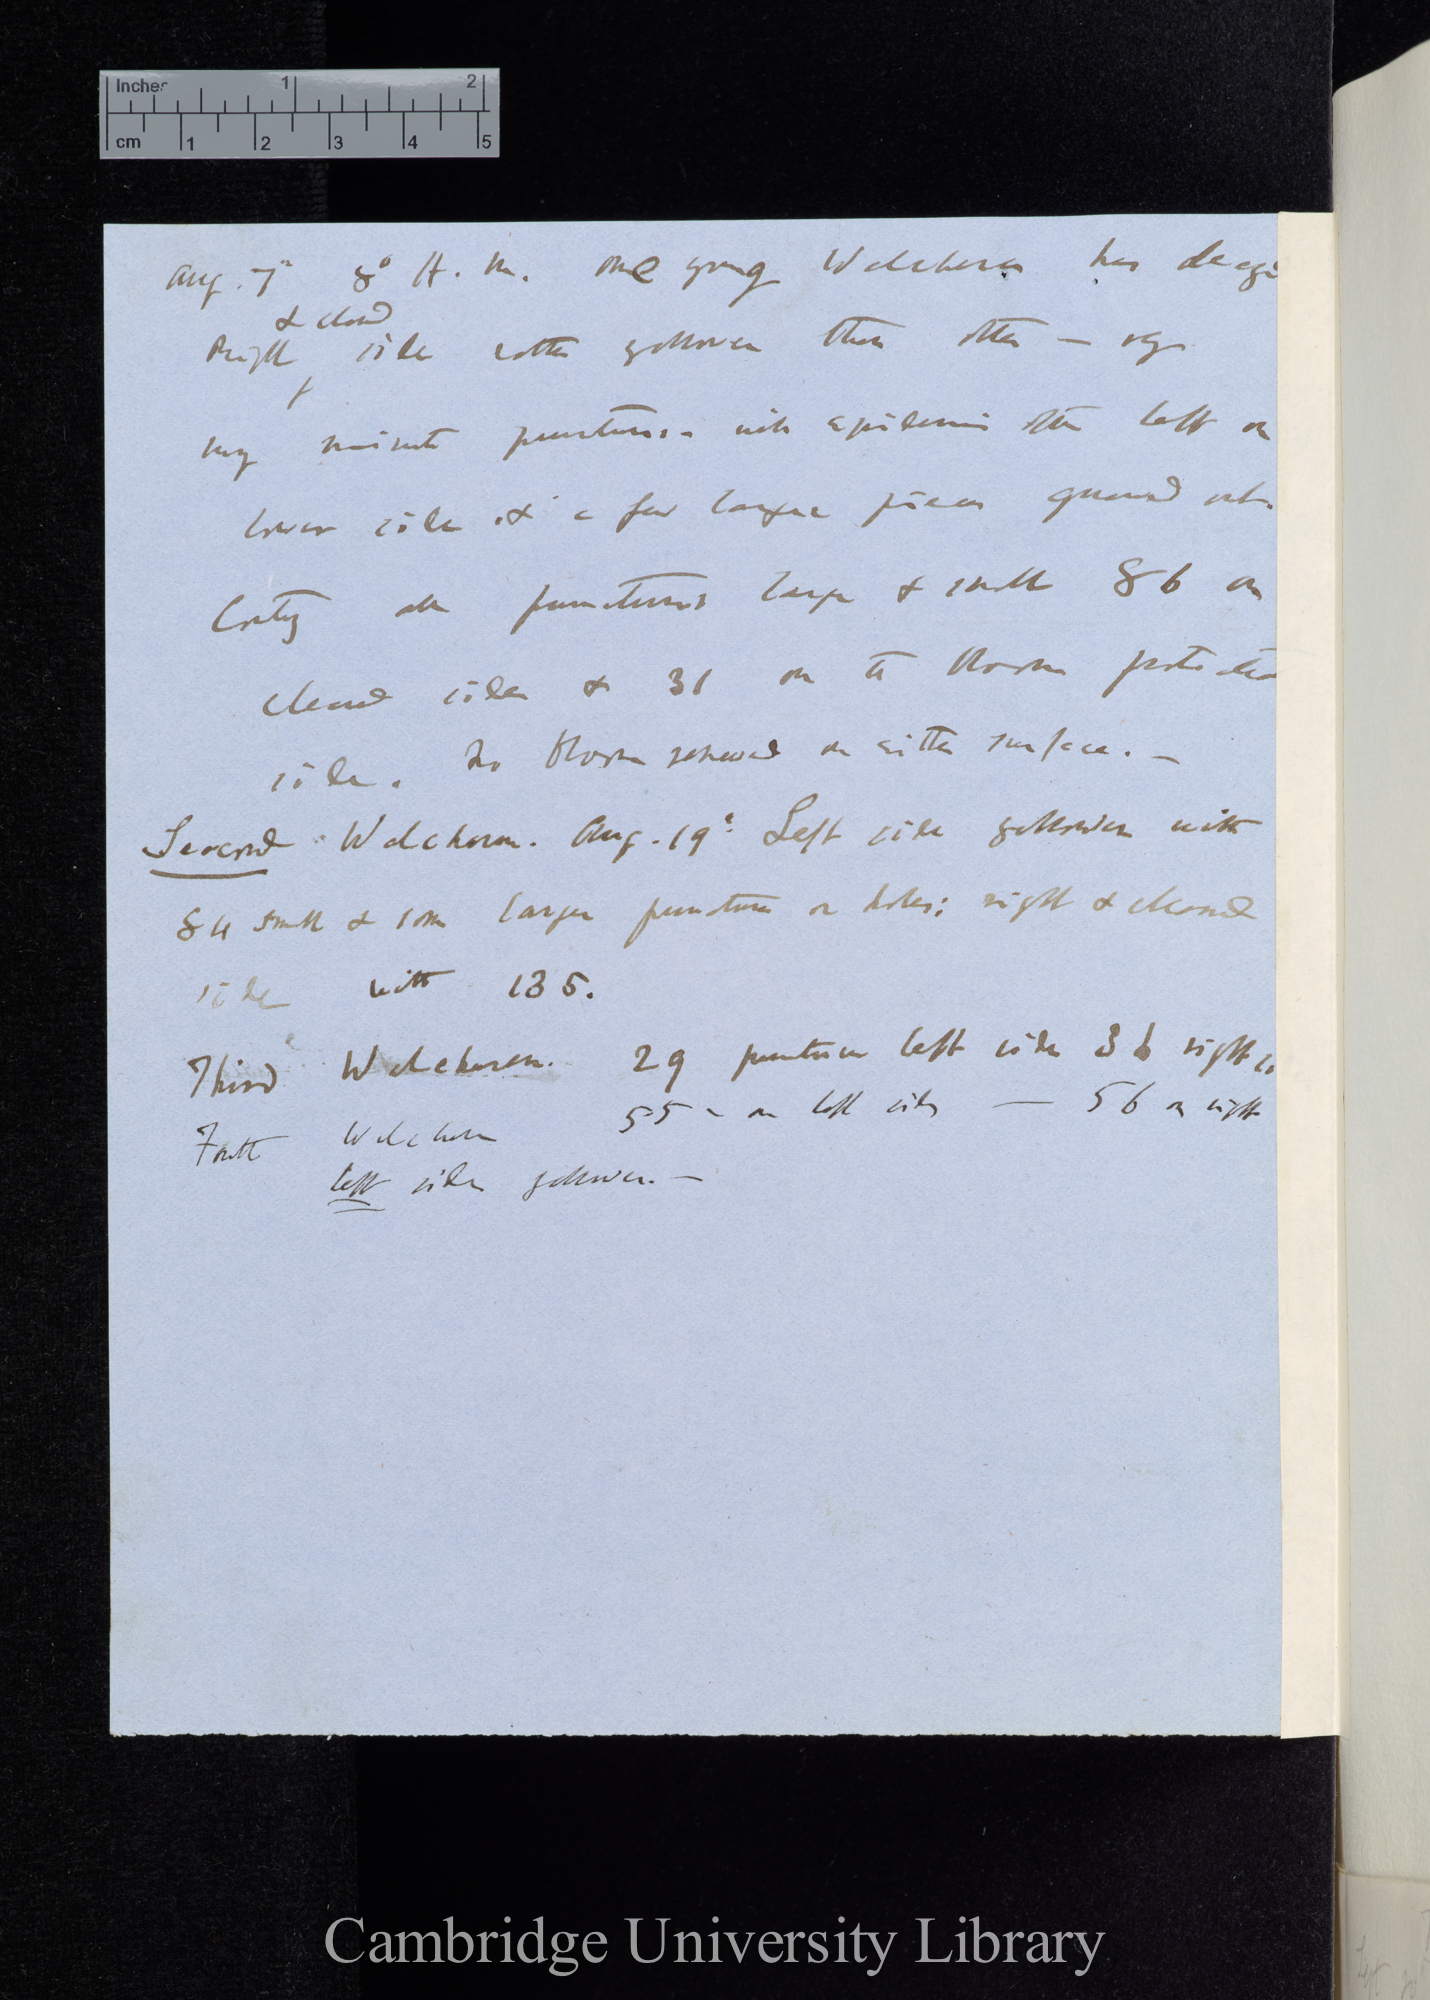 Inches 1 2
cm 1 2 3 4 5
Aug. 7th 8° A. M. one young Welchoren has
& cleaned
Right side rather yellower than other —
my minute punctures. with epidermis often left on
lower side & a few larger pieces gnawed out.
Counting all punctures large & small 86 on
cleaned side & 31 on the bloom protected
side. No bloom renewed on either surface. —
Second Welchoren. Aug. 19th Left side yellower with
84 small & some larger puncture or holes; right & cleaned
side with 135.
Third Welchoren. 29 punctures left side 36 right
Fourth Welchoren 55 on left side — 56 on right
left side yellower. —
Cambridge University Library